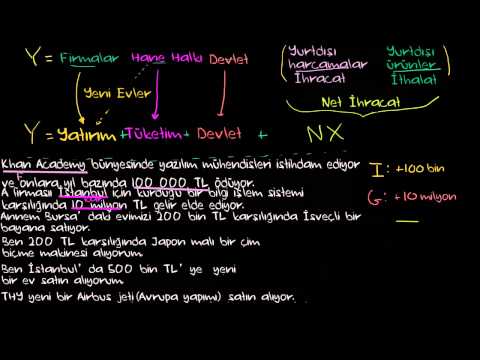 Y = Firmalar Hane Halkı Devlet
(Yurtdışı harcamalar İhracat Yurtdışı ürünler İthalat)
Yeni Evler
Net İhracat
Y = Yatırım + Tüketim + Devlet + NX
Khan Academy bünyesinde yazılım mühendisleri istihdam ediyor
ve onlara yıl bazında 100 000 TL ödüyor.
A firması İstanbul için kurduğu bir bilgi işlem sistemi
karşılığında 10 milyon TL gelir elde ediyor.
Annem Bursa' daki evimizi 200 bin TL karşılığında İsveçli bir
bayana satıyor.
Ben 200 TL karşılığında Japon malı bir çim
biçme makinesi alıyorum.
Ben İstanbul' da 500 bin TL' ye yeni
bir ev satın alıyorum.
THY yeni bir Airbus jeti (Avrupa yapımı) satın alıyor.
I: +100 bin
G: +10 milyon